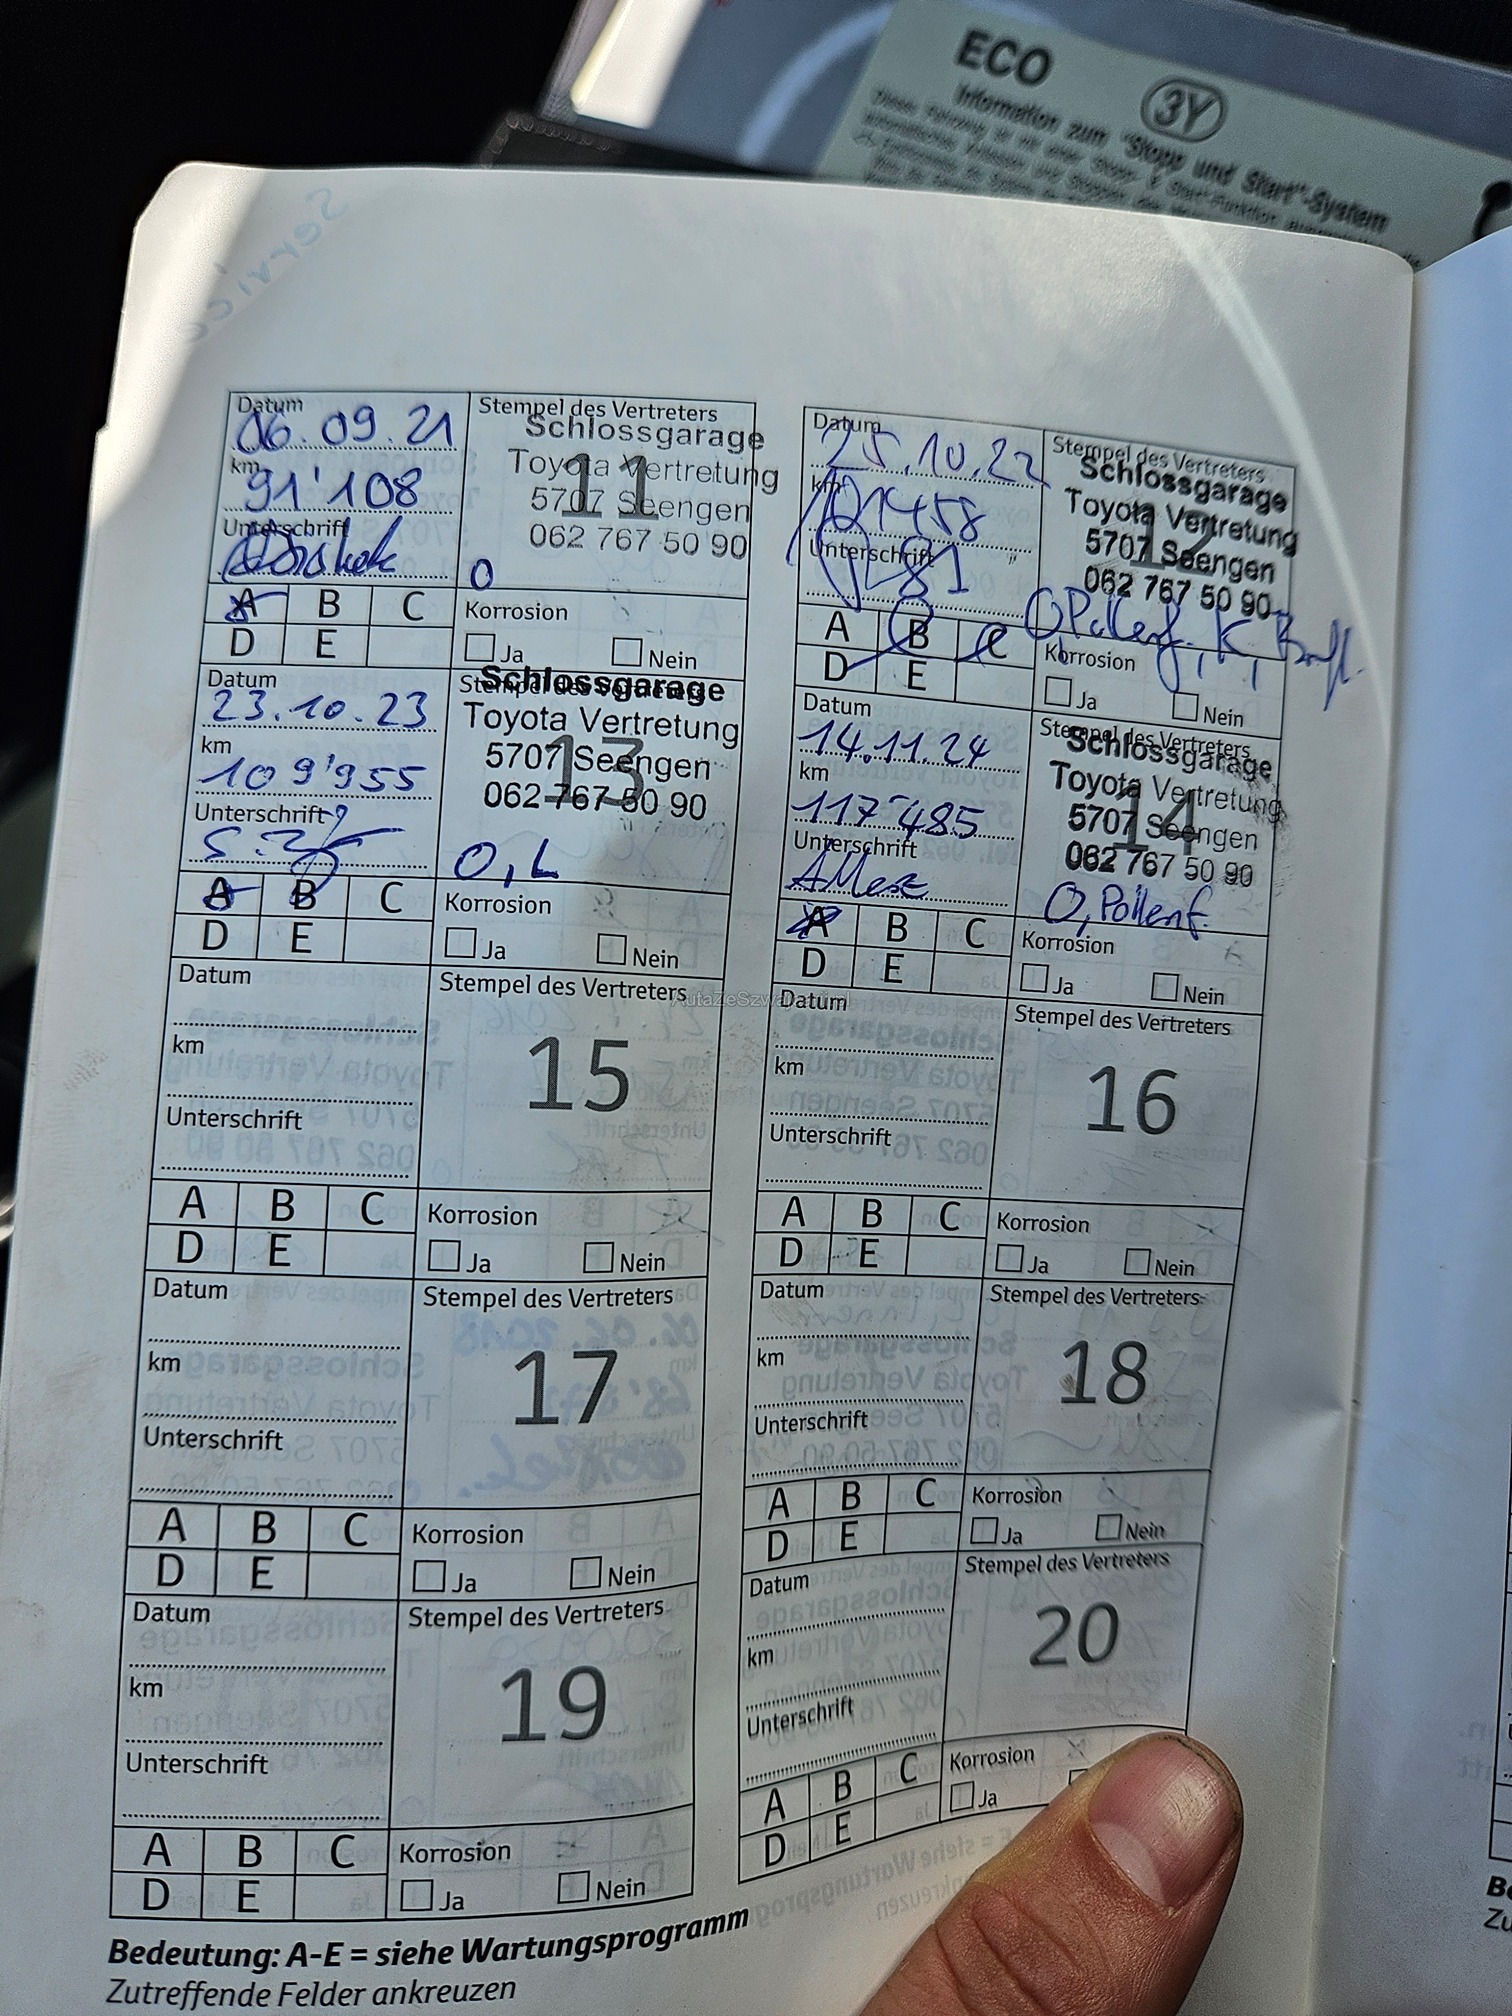 ECO
3Y
Information zum "Stopp und Start"-System
Service
Datum
06.09.21
km
91'108
Unterschrift
Stempel des Vertreters
11
Schlossgarage
Toyota Vertretung
5707 Seengen
062 767 50 90
O
A B C
D E
Korrosion
Ja Nein
Datum
25.10.22
km
101458
Unterschrift
Stempel des Vertreters
12
Schlossgarage
Toyota Vertretung
5707 Seengen
062 767 50 90
O Pollenf., K,
A B C
D E
Korrosion
Ja Nein
Datum
23.10.23
km
109'955
Unterschrift
Stempel des Vertreters
13
Schlossgarage
Toyota Vertretung
5707 Seengen
062 767 50 90
O, L
A B C
D E
Korrosion
Ja Nein
Datum
14.11.24
km
117'485
Unterschrift
Stempel des Vertreters
14
Schlossgarage
Toyota Vertretung
5707 Seengen
062 767 50 90
O, Pollenf.
A B C
D E
Korrosion
Ja Nein
Datum
km
Unterschrift
Stempel des Vertreters
15
A B C
D E
Korrosion
Ja Nein
Datum
km
Unterschrift
Stempel des Vertreters
16
A B C
D E
Korrosion
Ja Nein
Datum
km
Unterschrift
Stempel des Vertreters
17
A B C
D E
Korrosion
Ja Nein
Datum
km
Unterschrift
Stempel des Vertreters
18
A B C
D E
Korrosion
Ja Nein
Datum
km
Unterschrift
Stempel des Vertreters
19
A B C
D E
Korrosion
Ja Nein
Datum
km
Unterschrift
Stempel des Vertreters
20
A B C
D E
Korrosion
Ja
Bedeutung: A-E = siehe Wartungsprogramm
Zutreffende Felder ankreuzen